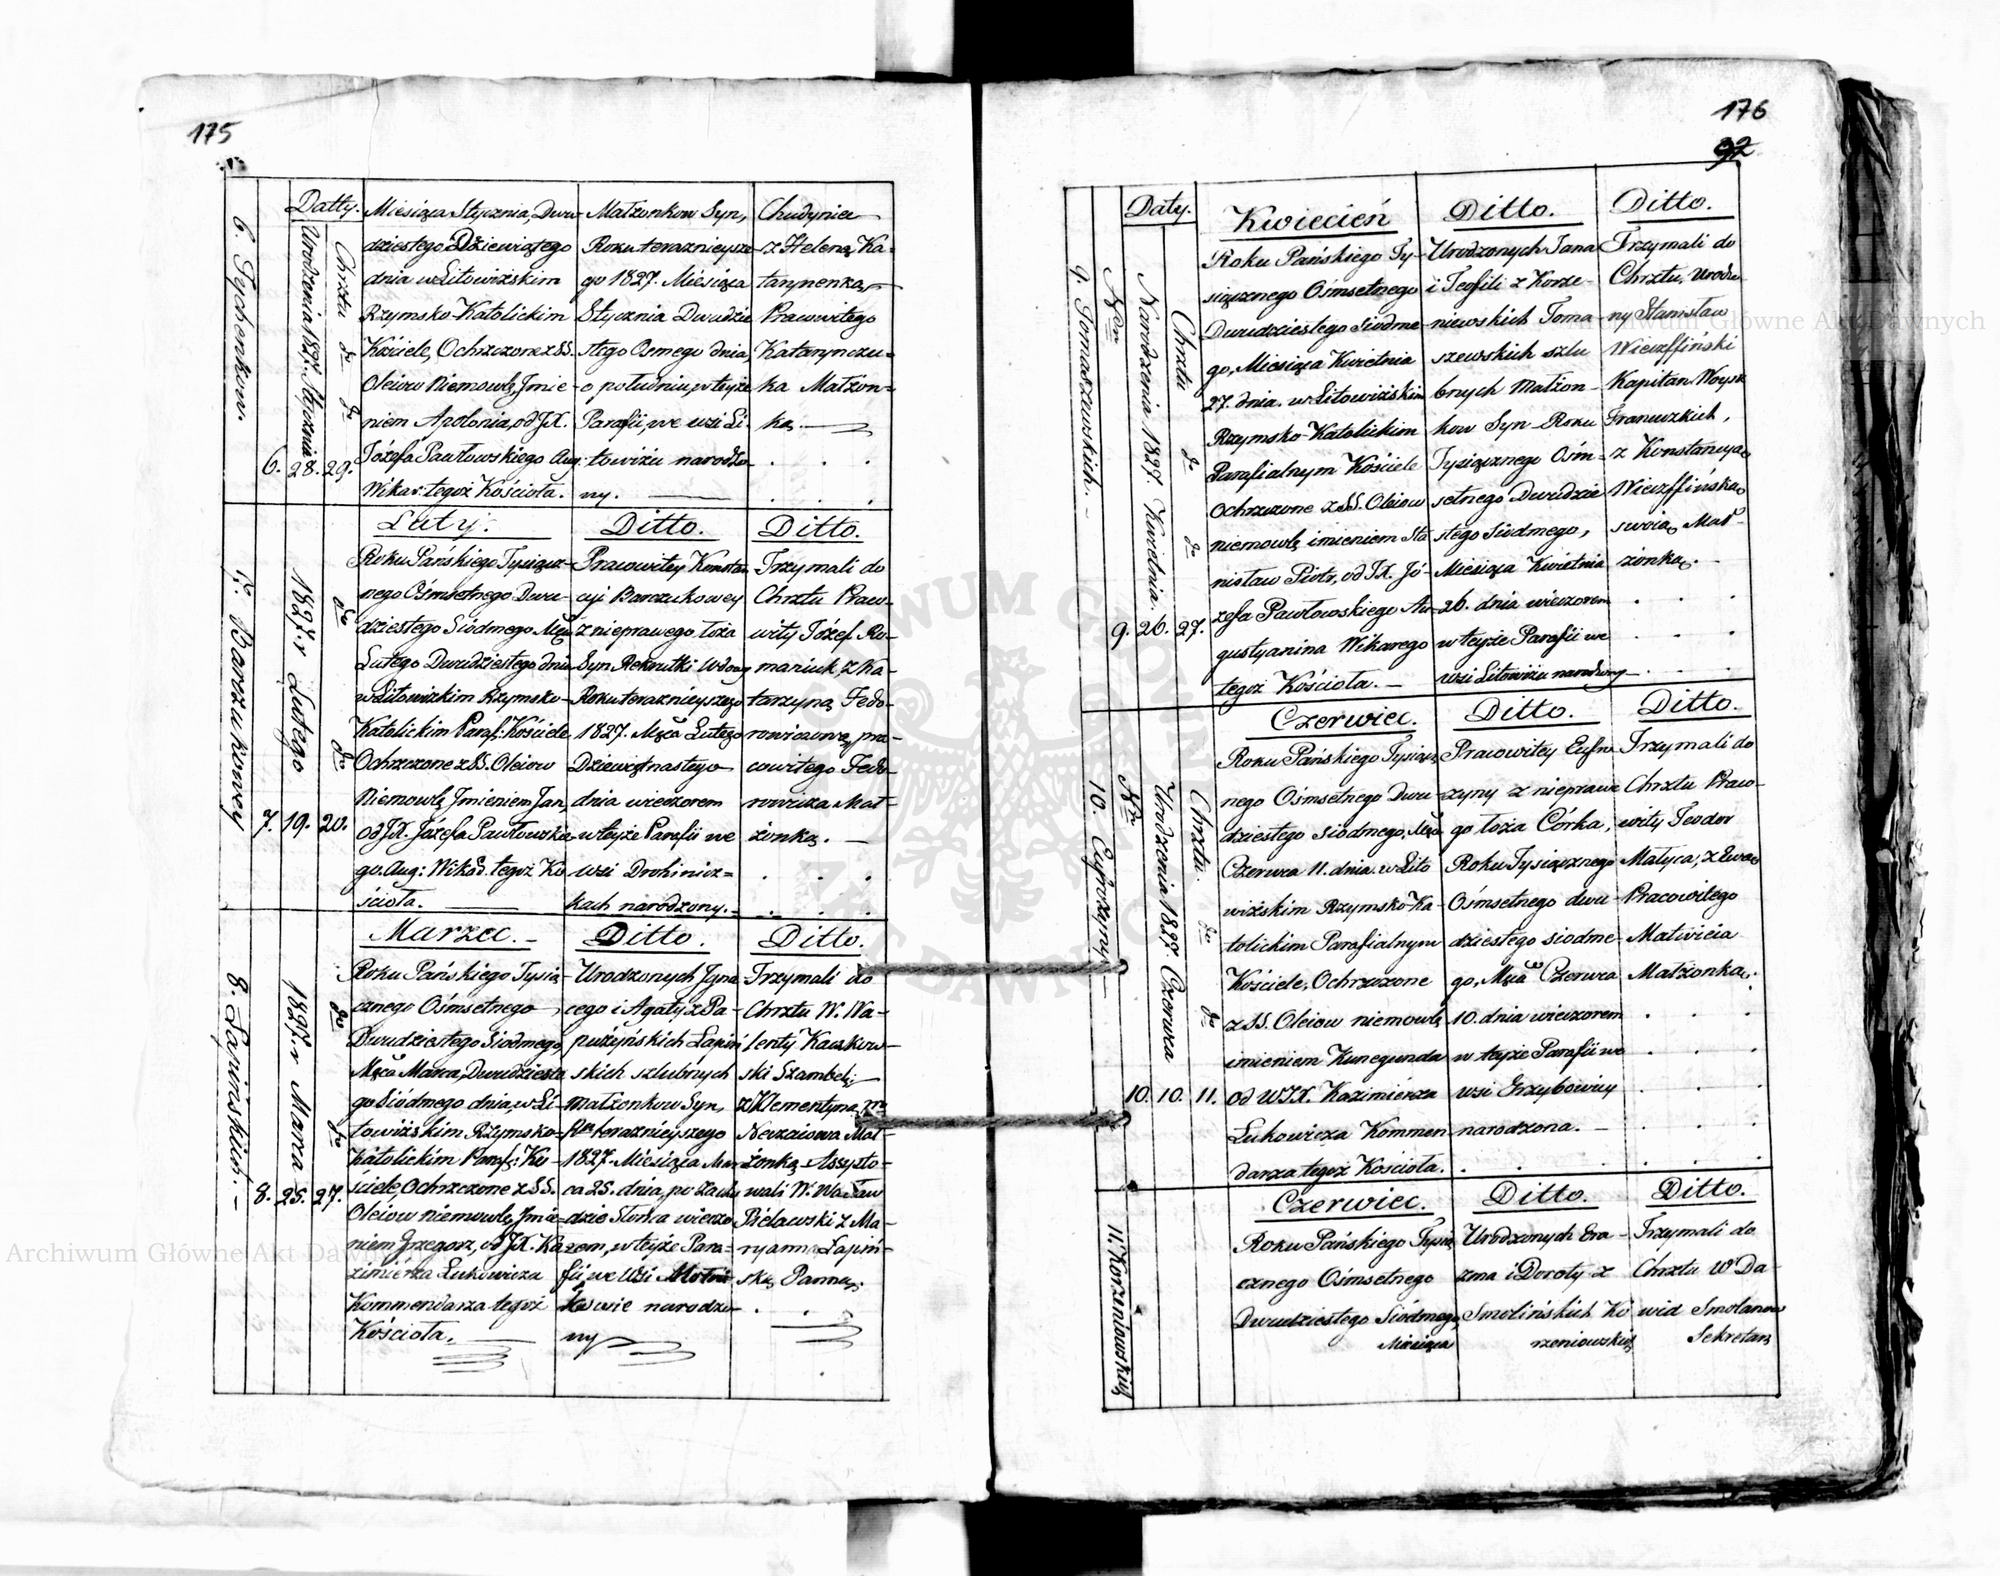 175
Datty.
6. Tychenkow.
Urodzenia 1827. Stycznia
Chrztu do do
6. 28. 29.
Miesiąca Stycznia, Dwu-
dziestego Dziewiątego
dnia w Litowiżskim
Rzymsko-Katolickim
Kościele, Ochrzczone z SS.
Oleiow Niemowlę, Jmie-
niem Apolonia, od JX.
Józefa Pawłowskiego Aug:
Wikar: tegoż Kościoła.
Małżonkow Syn,
Roku teraznieysze-
go 1827. Miesiąca
Stycznia Dwudzie
stego Osmego dnia,
o południu, w teyże
Parafii, we wsi Li-
towiżu narodzo-
ny.
Chudynia
z Heleną Ka-
tarynenką
Pracowitego
Katarynczu-
ka Małżon-
ką.
7. Barszukowey
1827. r Lutego
do do
7. 19. 20.
Luty.
Roku Pańskiego Tysiącz-
nego Ośmsetnego Dwu-
dziestego Siódmego Mca
Lutego Dwudziestego dnia
w Litowizkim Rzymsko-
Katolickim Paraf: Kościele
Ochrzczone z SS. Oleiow
Niemowlę Jmieniem Jan,
od JX. Józefa Pawłowskie-
go Aug: Wikar. tegoż Ko
ścioła.
Ditto.
Pracowitey Konstan
cyi Barszukowey
z nieprawego łoża
Syn Rekrutki Wdowy
Roku teraznieyszego
1827. Mca Lutego
Dziewiętnastego
dnia wieczorem
w teyże Parafii we
wsi Drohinicz-
kach narodzony.
Ditto.
Trzymali do
Chrztu Praco-
wity Józef Ro-
maniuk, z Ka-
tarzyną Fedo-
rowiczową, pra-
cowitego Fedo-
rowicza Mał-
żonką.
8. Łapińskich.
1827. r Marca
do do
8. 25. 27.
Marzec.
Roku Pańskiego Tysią-
cznego Ośmsetnego
Dwudziestego Siódmego,
Mca Marca, Dwudzieste
go Siódmego dnia, w Li-
towizskim Rzymsko-
Katolickim Paraf: Ko-
ściele, Ochrzczone z SS.
Oleiow niemowlę, Jmie-
niem Grzegorz, od JX. Ka
zimierza Łukowicza
Kommendarza tegoż
Kościoła.
Ditto.
Urodzonych Jgna
cego i Agaty z Pa-
pużyńskich Łapiń
skich szlubnych
Małżonkow Syn,
Rku teraznieyszego
1827. Miesiąca Mar
ca 25. dnia, po Zacho
dzie Słońca wieczo
rem, w teyże Para-
fii we Wsi
narodzo-
ny
Ditto.
Trzymali do
Chrztu W. Wa-
lenty Kaczkow-
ski Szambel:
z Klementyną
Mał-
żonką. Assysto-
wali W. Wacław
Bielawski z Ma-
ryanną Łapiń-
ską Panną.
176
92
Daty.
Nro
9. Tomaszewskich.
Narodzenia 1827. Kwietnia.
Chrztu do do
9. 26. 27.
Kwiecień
Roku Pańskiego Ty-
siącznego Ośmsetnego
Dwudziestego Siódme
go, Miesiąca Kwietnia
27. dnia. w Litowiżskim
Rzymsko-Katolickim
Parafialnym Kościele
Ochrzczone z SS. Oleiow
niemowlę imieniem Sta
nisław Piotr, od JX. Jó-
zefa Pawłowskiego Au-
gustyanina Wikarego
tegoż Kościoła.
Ditto.
Urodzonych Jana
i Teofili z Korze-
niewskich Toma-
szewskich szlu
bnych Małżon-
kow Syn Roku
Tysiącznego Ośm-
setnego Dwudzie
stego Siódmego,
Miesiąca Kwietnia
26. dnia wieczorem
w teyże Parafii we
wsi Litowiżu narodzony
Ditto.
Trzymali do
Chrztu, Urodzo
ny Stanisław
Kapitan Woysk
Francuzkich,
z Konstancyą
swoią Mał-
żonką.
Nro
10. Eufrozyny
Urodzenia 1827 Czerwca
Chrztu. do do
10. 10. 11.
Czerwiec.
Roku Pańskiego Tysiącz
nego Ośmsetnego Dwu-
dziestego siodmego, Mca
Czerwca 11. dnia. w Lito
wiżskim Rzymsko-Ka-
tolickim Parafialnym
Kościele, Ochrzczone
z SS. Oleiow niemowlę
imieniem Kunegunda
od WJX. Kazimierza
Łukowicza Kommen
darza tegoż Kościoła.
Ditto.
Pracowitey Eufro
zyny z niepraw
go łoża Córka,
Roku Tysiącznego
Ośmsetnego dwu-
dziestego siodme-
go, Mca Czerwca
10. dnia wieczorem
w teyże Parafii we
wsi Grzybowicy
narodzona.
Ditto.
Trzymali do
Chrztu Praco-
wity Teodor
Matyca, z Ewą
Pracowitego
Matwieia
Małżonką.
11. Korzeniowskich
Czerwiec.
Roku Pańskiego Tysią
cznego Ośmsetnego
Dwudziestego Siódmego,
Miesiąca
Ditto.
Urodzonych Era-
zma i Doroty z
Smolińskich Ko
rzeniowskich
Ditto.
Trzymali do
Chrztu W Da-
wid Smolanow
Sekretarz
Archiwum Główne Akt Dawnych
Archiwum Główne Akt Dawnych
ARCHIWUM GŁÓWNE AKT DAWNYCH